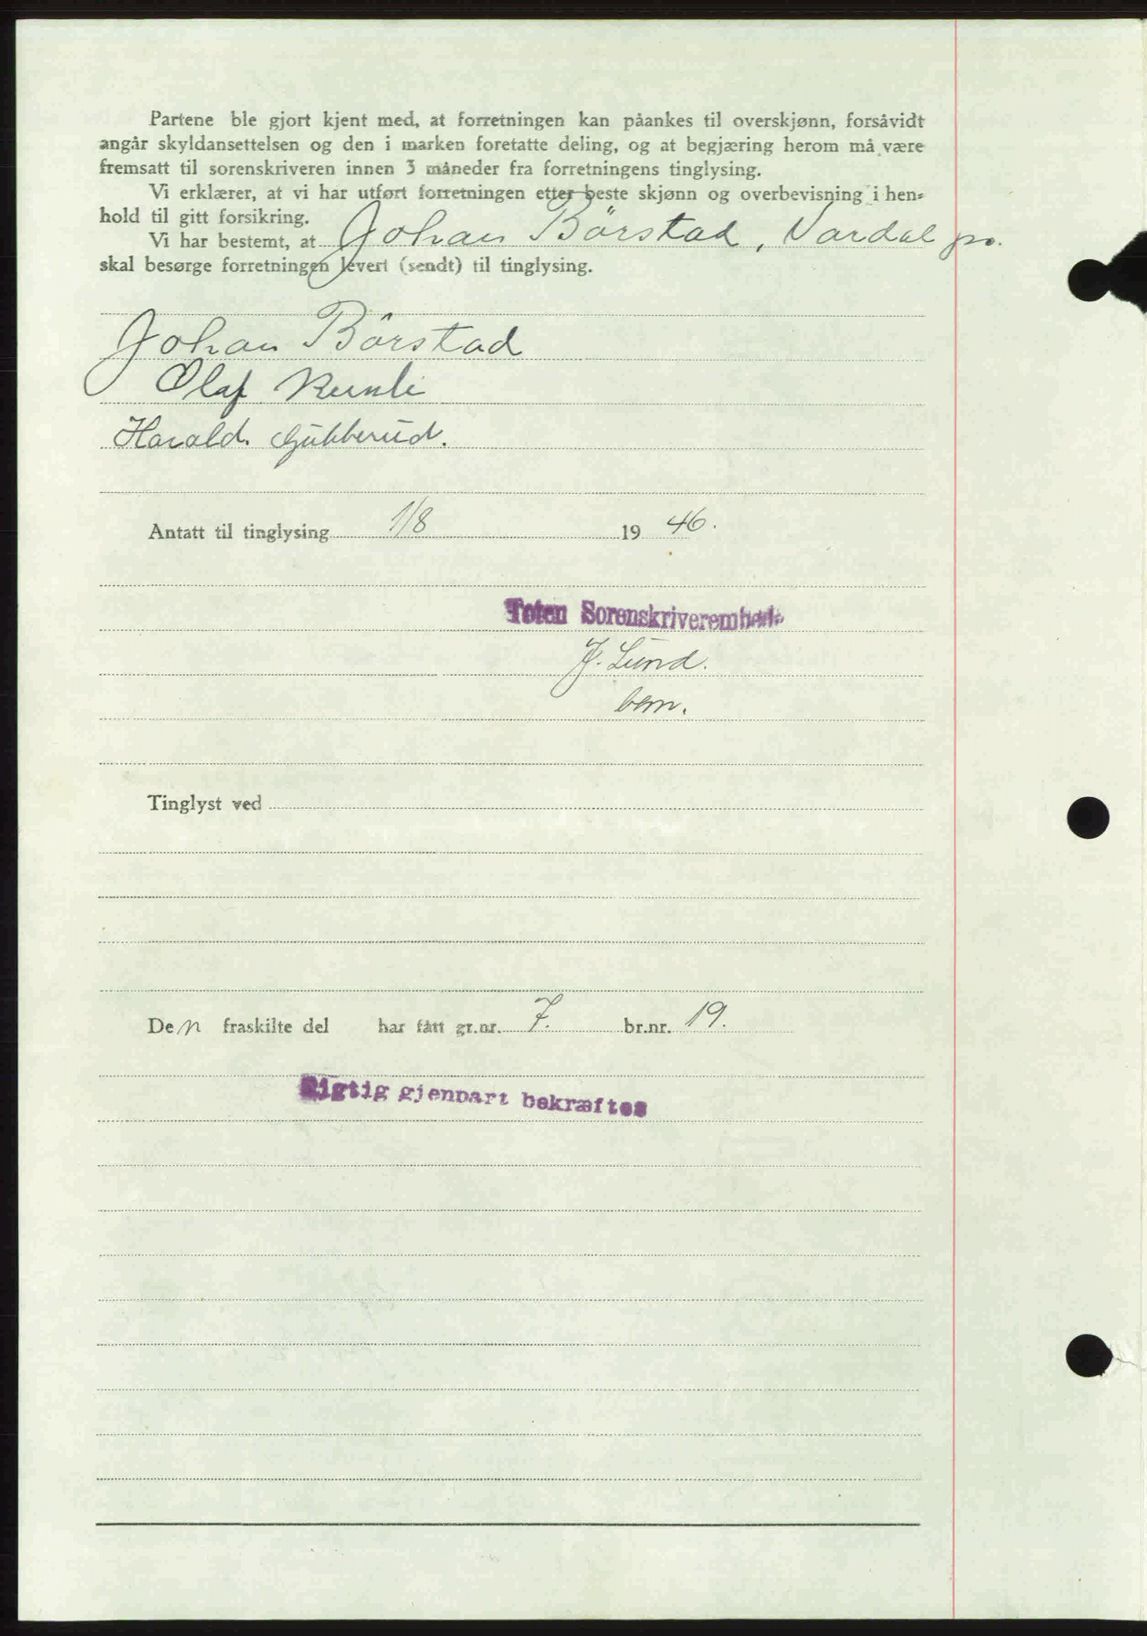 Partene ble gjort kjent med, at forretningen kan påankes til overskjønn, forsåvidt
angår skyldansettelsen og den i marken foretatte deling, og at begjæring herom må være
fremsatt til sorenskriveren innen 3 måneder fra forretningens tinglysing.
Vi erklærer, at vi har utført forretningen etter beste skjønn og overbevisning i hen-
hold til gitt forsikring.
Vi har bestemt, at Johan Börstad, Vardal po.
skal besørge forretningen levert (sendt) til tinglysing.
Johan Börstad
Olaf
Harald
Antatt til tinglysing 1/8 19 46.
Toten Sorenskriverembede
J. Lund.
bem.
Tinglyst ved
Den fraskilte del har fått gr.nr. 7. br.nr. 19.
Rigtig gjenpart bekræftes